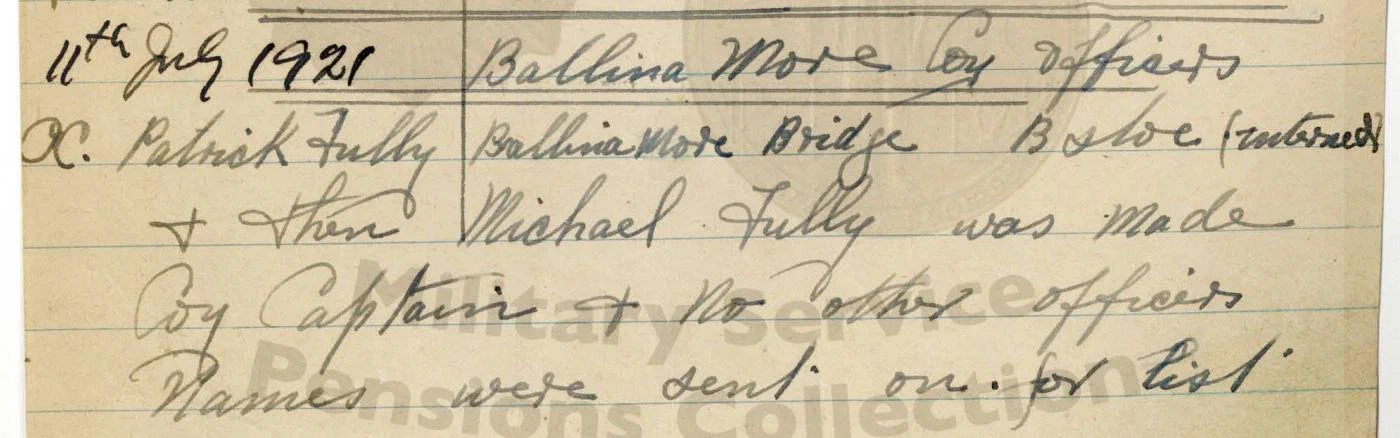 11th July 1921 Ballina More Coy Officers
X. Patrick Fully Ballina More Bridge B sloe (interned)
+ then Michael Fully was made
Coy Captain + No other officers
Names were sent on. for list
Military Service
Pensions Collection